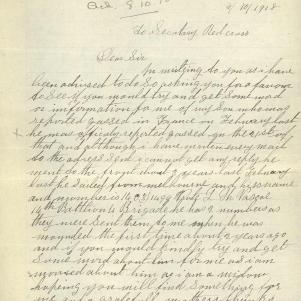 Ack 8.10.18
9/10/1918
To Secretary Red cross
Dear Sir
In writing to you as i have
been advised to do So asking you for a favor
to See if you would try and get Some word
or information for me of my Son who was
reported gassed in France on Febuary last
he was officialy reported gassed on the of
that and although i have written every mail
to the adress Sent i cannot get any reply he
went to the front about 2 years last Febuary
last he Sailed from melbourne and his name
and number is
14th Battlion 4 Brigade he has 2 numbers as
they sent them to me when he was
wounded the first time a years ago
and if you would kindly try and get
Some word about him for me as i am
worried about him as i am a widow
hoping you will find Something for
me